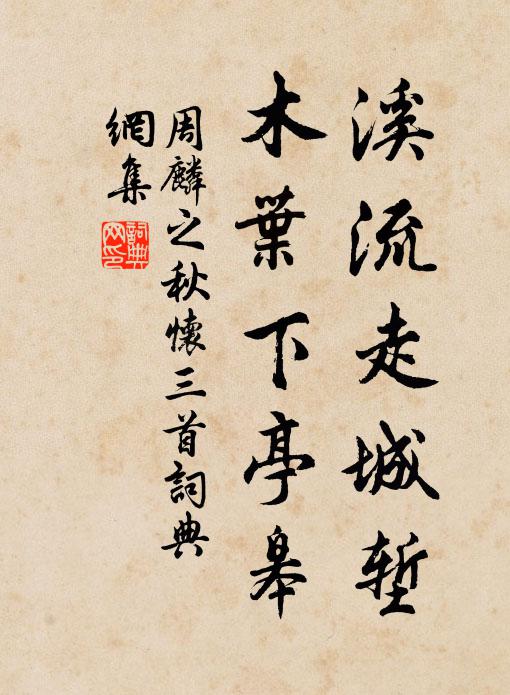 溪流走城堑
木葉下亭皋
周麟之秋懷三首詞典
網集
詞典
网印